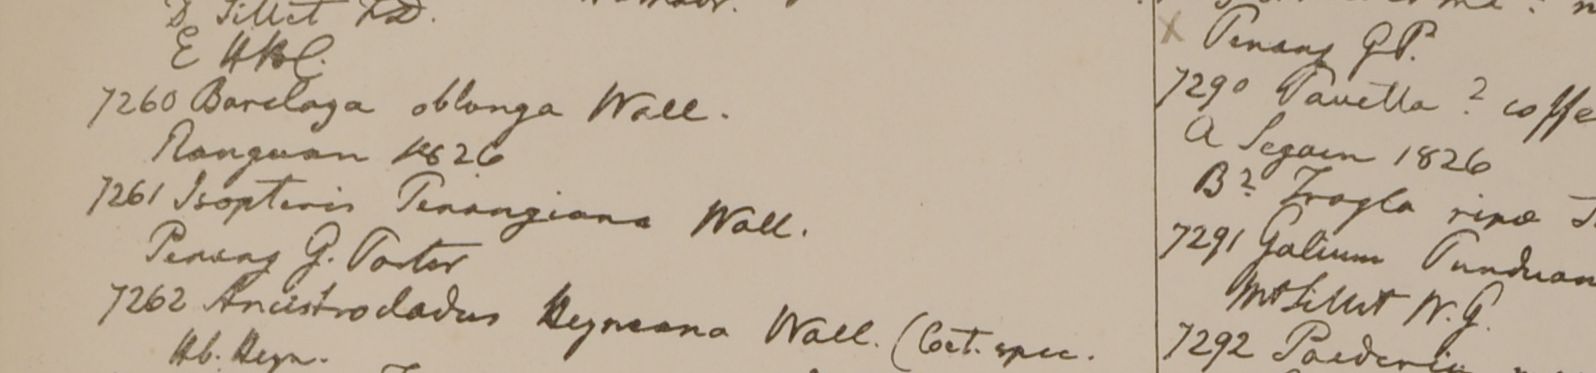 D. Sillet F.D.
E HBC.
7260 Barclaya oblonga Wall.
Ranguan 1826
7261 Isopteris Penangiana Wall.
Penang G. Porter
7262 Ancistrocladus Heyneana Wall. (Cat. spec.
Hb. Heyn.
X Penang G.P.
7290 Pavetta ? coffe
A Segain 1826
B? Pragla ripae
7291 Galium Punduan
Mt Sillet W.G.
7292 Paederia